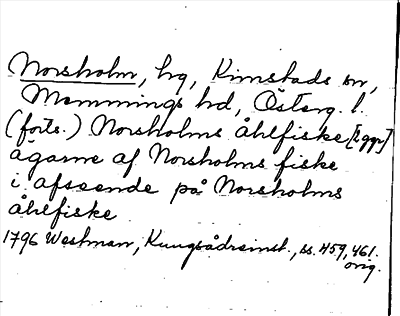 Norsholm, hg, Kimstads sn,
Memmings hd, Österg. l.
(forts.) Norsholms åhlfiske [Ggr]
ägarne af Norsholms fiske
i afseende på Norsholms
åhlfiske
1796 Westman, Kungsådreinst., ss. 459, 461.
orig.